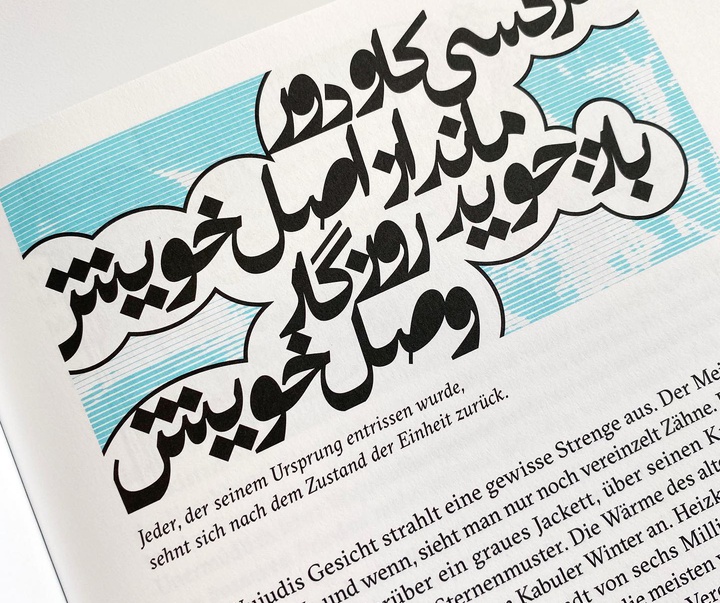 رکسی کاو دور
ماند از اصل خویش
باز جوید روزگار
وصل خویش
Jeder, der seinem Ursprung entrissen wurde,
sehnt sich nach dem Zustand der Einheit zurück.
Gesicht strahlt eine gewisse Strenge aus. Der
und wenn, sieht man nur noch vereinzelt Zähne.
ein graues Jackett, über seinen
Sternenmuster. Die Wärme des
Kabuler Winter an.
von sechs
die meisten